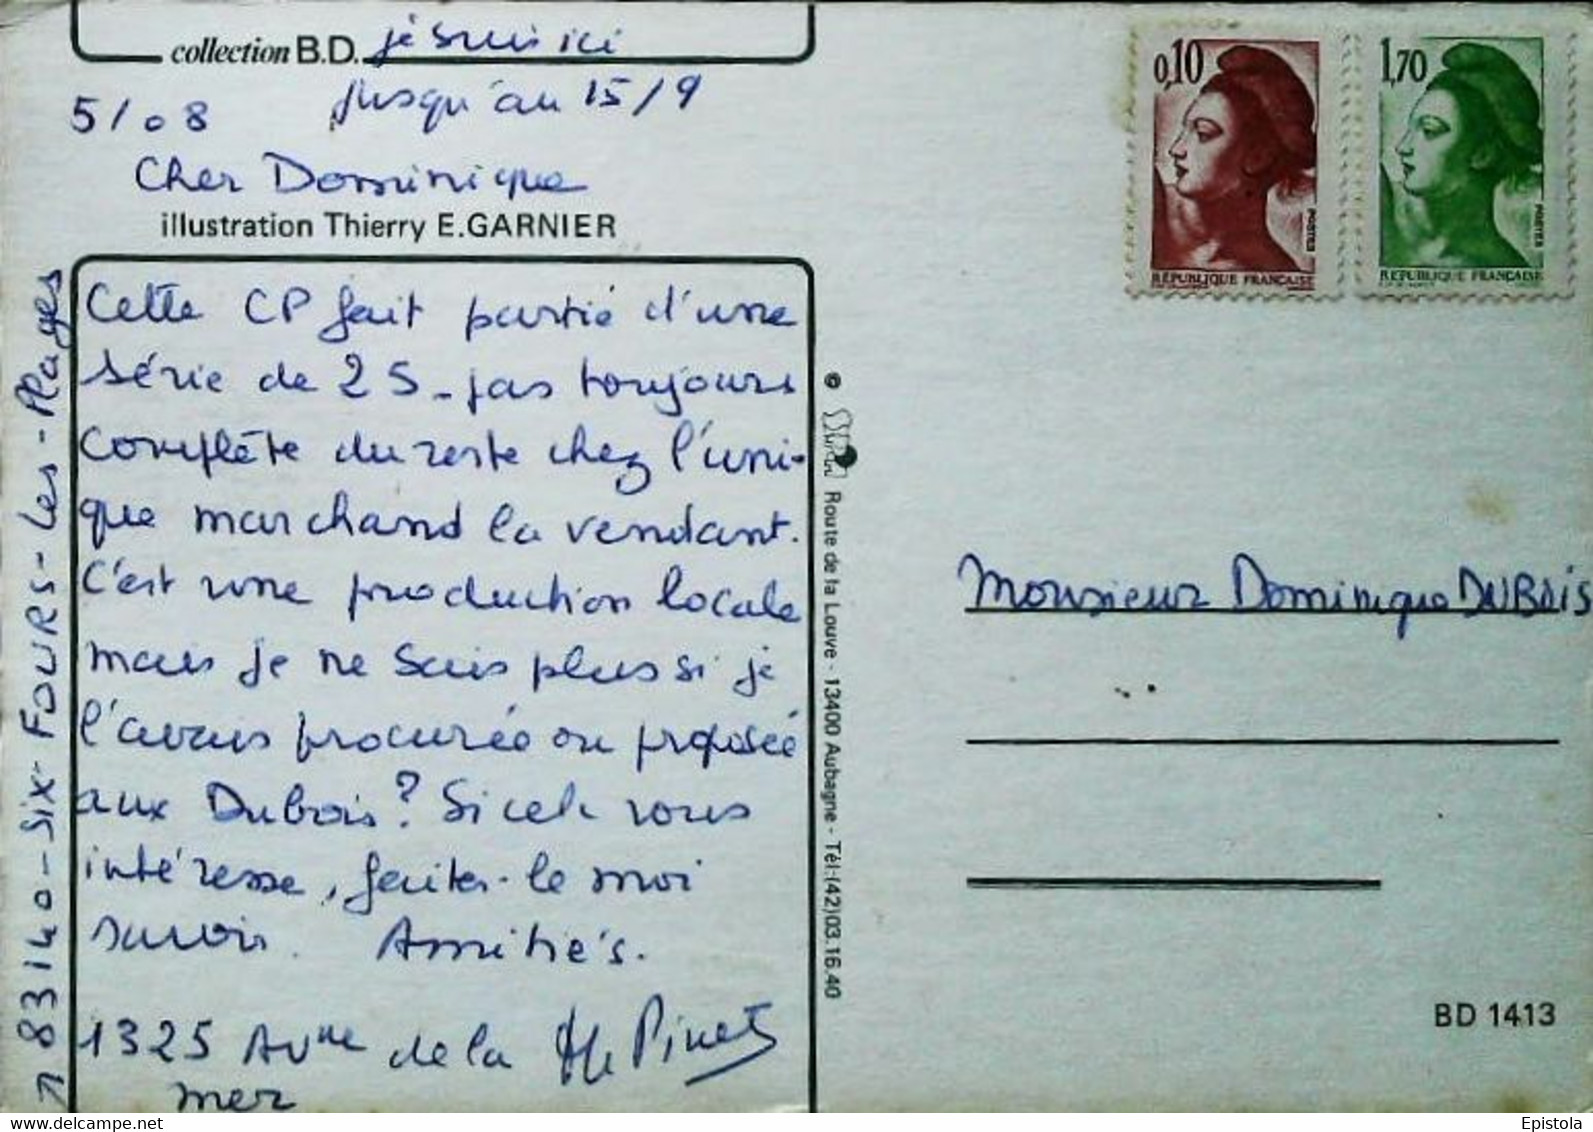 collection B.D.
je suis ici
jusqu'au 15/9
5/08
Cher Dominique
illustration Thierry E.GARNIER
Cette CP fait partie d'une
série de 25 - pas toujours
complète du reste chez l'uni-
que marchand la vendant.
C'est une production locale
mais je ne sais plus si je
l'avais procurée ou proposée
aux Dubois ? Si cela vous
intéresse, faites-le moi
savoir. Amitiés.
1325 Avnue de la
mer
Pinet
↑ 83140 - Six-FOURS-Les-Plages
0,10
POSTES
RÉPUBLIQUE FRANÇAISE
1,70
POSTES
REPUBLIQUE FRANÇAISE
© Route de la Louve - 13400 Aubagne - Tél:(42)03.16.40
Monsieur Dominique DUBOIS
BD 1413
Epistola